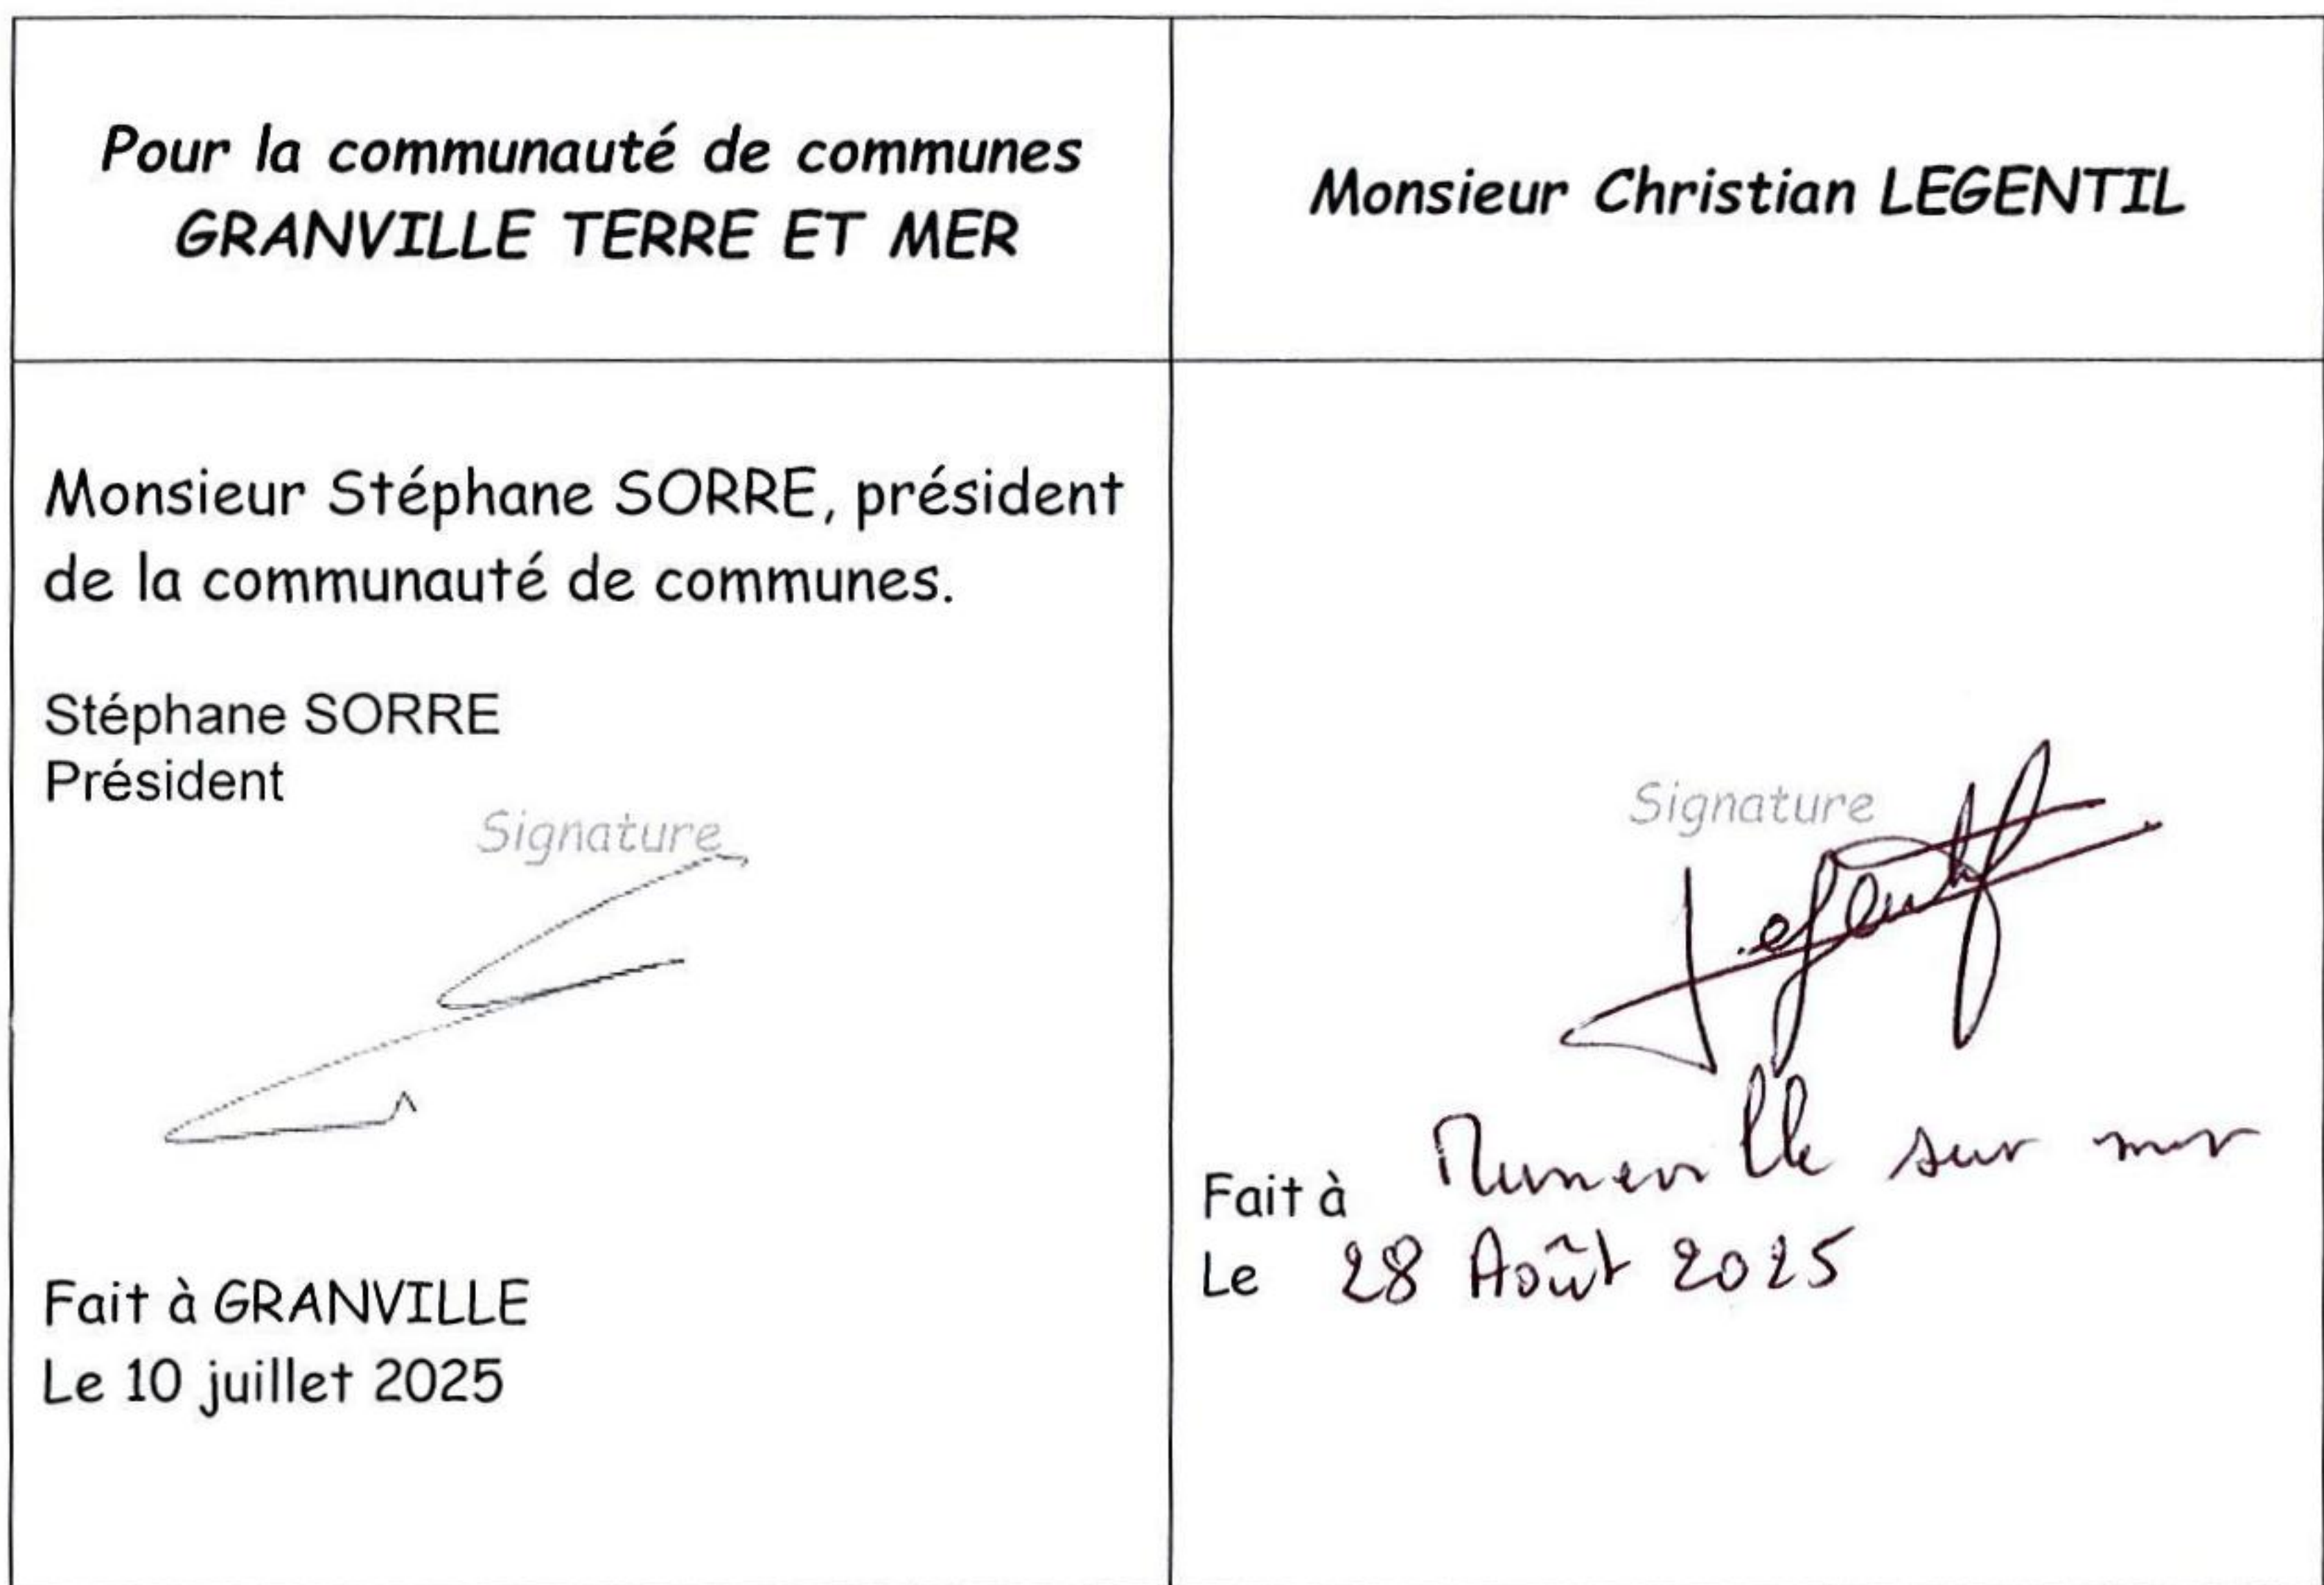 Pour la communauté de communes
GRANVILLE TERRE ET MER
Monsieur Christian LEGENTIL
Monsieur Stéphane SORRE, président
de la communauté de communes.
Stéphane SORRE
Président
Signature
Fait à GRANVILLE
Le 10 juillet 2025
Signature
Legentil
Fait à Muneville sur mer
Le 28 Août 2025